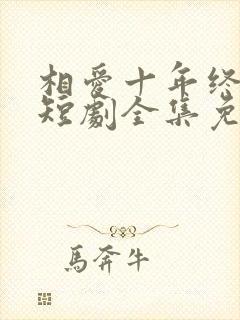 相愛十年终
短劇全集免
馬奔牛